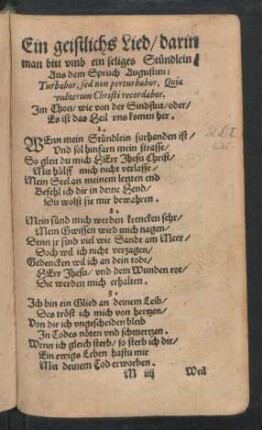 Ein geistlichs Lied/ darin
man bitt vmb ein seliges Stündlein/
Aus dem Spruch Augustini:
Turbabor, sed non perturbabor, Quia
vulnerum Christi recordabor.
Im Thon/ wie von der Sindflut/ oder/
Es ist das Heil vns komen her.
1.
WEnn mein Stündlein fürhanden ist/
Vnd sol hinfarn mein strasse/
So gleit du mich HErr Jhesu Christ/
Mit hülff mich nicht verlasse/
Mein Seel an meinem letzten end
Befehl ich dir in deine Hend/
Du wolst sie mir bewahren.
2.
Mein sünd mich werden krencken sehr/
Mein Gwissen wird mich nagen/
Denn jr sind viel wie Sande am Meer/
Doch wil ich nicht verzagen/
Gedencken wil ich an dein tode/
HErr Jhesu/ vnd dein Wunden rot/
Die werden mich erhalten.
3.
Ich bin ein Glied an deinem Leib/
Des tröst ich mich von hertzen/
Von dir ich vngescheiden bleib
In Todes nöten vnd schmertzen.
Wenn ich gleich sterb/ so sterb ich dir/
Ein ewigs Leben hastu mir
Mit deinem Tod erworben.
M iiij Weil